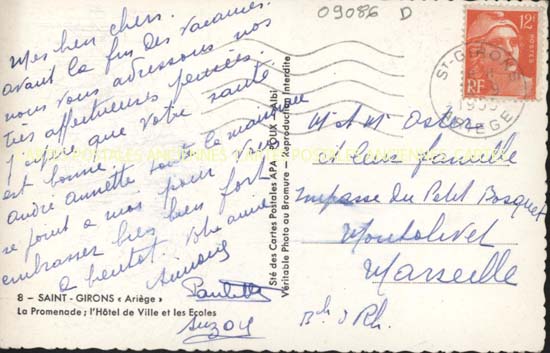 09086 D
Mes bien chers.
avant la fin des vacances.
nous vous adressons nos
très affectueuses pensées.
J'espère que votre santé
est bonne.
andré annette toute la maison
se joint a moi pour vous
embrasser bien bien fort
a bientot. Votre amie
Paulette
Suzon
8 - SAINT - GIRONS « Ariège »
La Promenade ; l'Hôtel de Ville et les Ecoles
Sté des Cartes Postales APA - POUX - Albi
Véritable Photo au Bromure - Reproduction Interdite
CARTES POSTALES ANCIENNES
12F
POSTES
RF
ST-GIRONS
ARIEGE
M et Me Astier
et leur famille
Impasse du Petit Bosquet
Montolivet
Marseille
Bch d Rh.